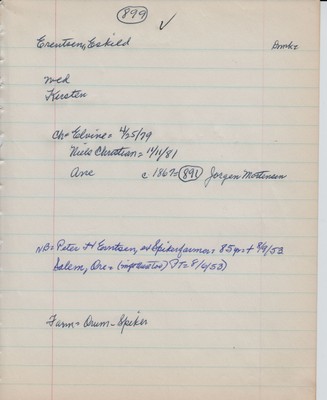 899 ✓
Erentsen, Eskild Dmk=
med
Kirsten
Ch= Elvine= 4/25/79
Niels Christian= 11/11/81
Ane c. 1867= 891 Jorgen Mortensen
NB= Peter H Erentsen, at Spikerfarmen= 85 yrs + 8/9/53
Salem, Ore= (immigrated) FT= 8/6/53)
Farm= Drum- Spiker